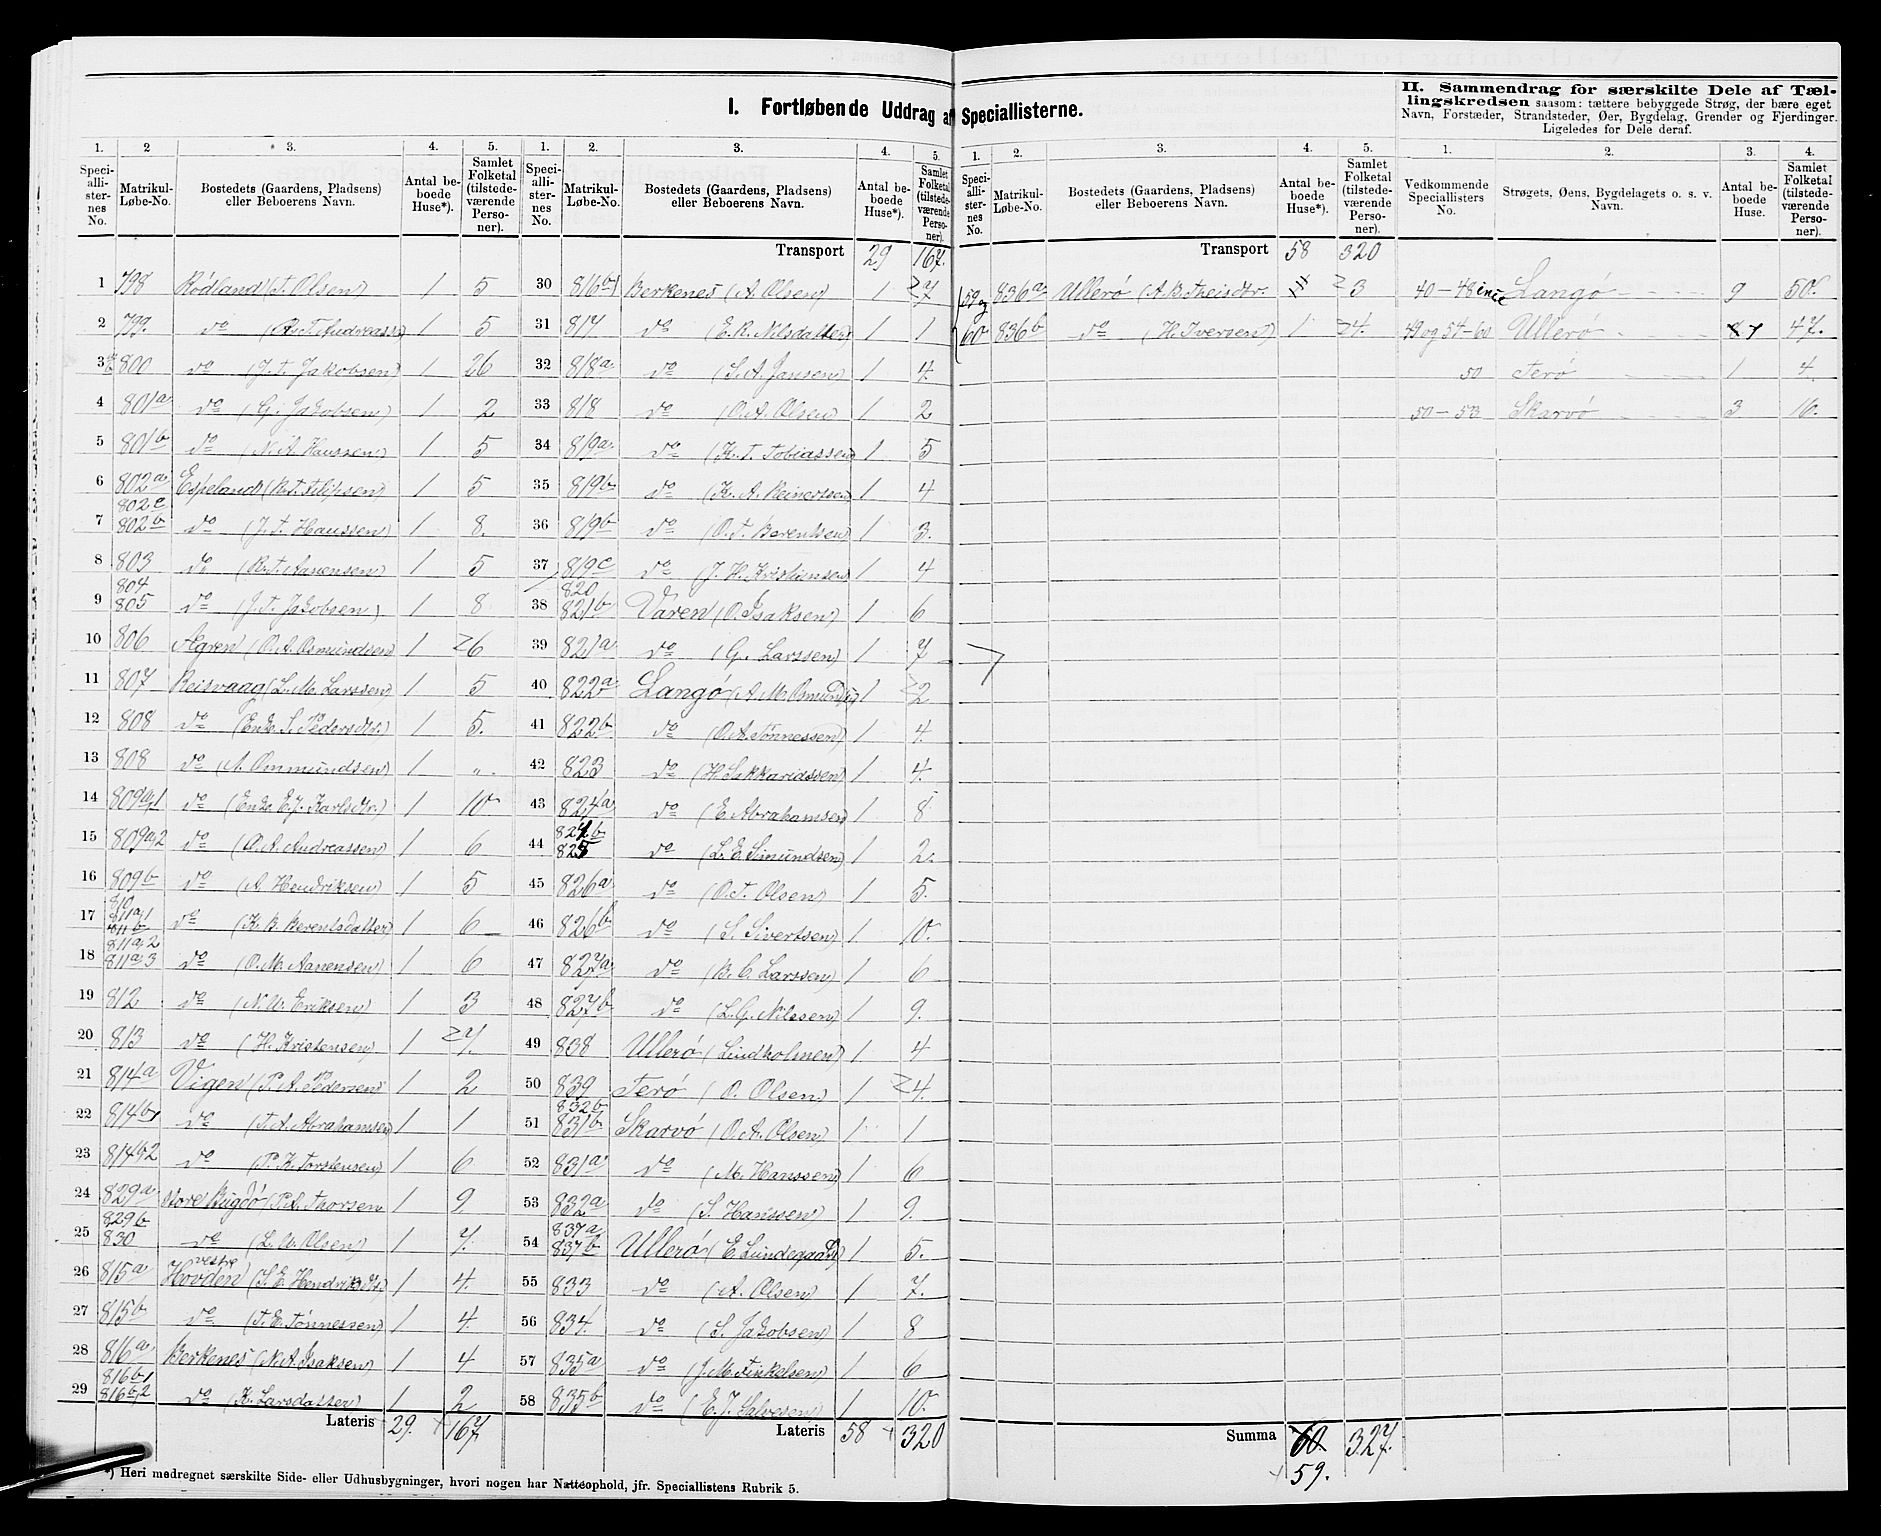 I. Fortløbende Uddrag af Speciallisterne.
1. 2 3. 4. 5.
Speciallisternes No. Matrikul-Løbe-No. Bostedets (Gaardens, Pladsens) eller Beboerens Navn. Antal beboede Huse*). Samlet Folketal (tilstedeværende Personer).
1 798 Rödland (T. Olsen) 1 5
2 799 do (A. T. Andreassen) 1 5
3 800 do (J. T. Jakobsen) 1 26
4 801a do (G. Jakobsen) 1 2
5 801b do (N. A. Hanssen) 1 5
6 802a 802c Espeland 1 5
7 802b do (J. T. Hanssen) 1 8.
8 803 do (R. T. Aanensen) 1 5
9 804 805 do (J. T. Jakobsen) 1 8
10 806 Agren (O. A. Osmundsen) 1 6
11 807 Reisvaag (L. M. Larssen) 1 5
12 808 do (Enke S. Pedersdtr.) 1 5.
13 808 do (A. Ommundsen) 1 „.
14 809a,1 do (Enke E. J. Karlsdtr.) 1 10
15 809a,2 do (O. A. Andreassen) 1 6
16 809b do (A. Hendriksen) 1 5
17 810 811a,1 811b do (K. B. Berentsdatter) 1 6
18 811a,2 811a,3 do (O. M. Aanensen) 1 6
19 812 do (N. A. Eriksen) 1 3
20 813 do (H. Kristensen) 1 7.
21 814a Vigen (P. A. Pedersen) 1 2
22 814b,1 do (T. A. Abrahamsen) 1 1
23 814b,2 do (P. K. Torstensen) 1 6
24 829a Store Bugdö (P. A. Thorsen 1 9
25 829b 830 do (L. A. Olsen) 1 7.
26 815a vestre Hovden (S. E. Hendriksdtr.) 1 4.
27 815b do (T. E. Tönnessen) 1 4.
28 816a Berkenes (N. A. Isaksen) 1 4
29 816b,1 816b,2 do (K. Larsdatter) 1 2
Lateris 29. 167
*) Heri medregnet særskilte Side- eller Udhusbygninger, hvori nogen har Natteophold, jfr. Speciallistens Rubrik 5.
1. 2. 3. 4. 5.
Speciallisternes No. Matrikul-Løbe-No. Bostedets (Gaardens, Pladsens) eller Beboerens Navn. Antal beboede Huse*). Samlet Folketal (tilstedeværende Personer).
Transport 29 167.
30 816b,1 Berkenes (A. Olsen) 1 7
31 817 do (E. R. Nilsdatter) 1 1
32 818a do (S. A. Jansen) 1 4.
33 818 do (O. A. Olsen) 1 2
34 819a do (K. T. Tobiassen) 1 5
35 819b do (K. A. Reinertsen) 1 4
36 819b do (O. T. Berentsen) 1 3.
37 819c do (J. H. Kristiansen) 1 4
38 820 821b Våren (O. Isaksen) 1 6
39 821a do (G. Larssen) 1 7
40 822a Langö 1 2
41 822b do (O. A. Tönnessen) 1 4.
42 823 do (H. Sakkariassen) 1 4.
43 824a do (E. Abrahamsen) 1 8
44 824b 825 do (L. E. Simundsen) 1 2.
45 826a do (O. T. Olsen) 1 5.
46 826b do (S. Sivertsen) 1 10.
47 827a do (B. C. Larssen) 1 6
48 827b do (L. G. Nilssen) 1 9.
49 838 Ullerö (Lindholmen) 1 4
50 839 Terö (O. Olsen) 1 4.
51 832b 831b Skarvö (O. A. Olsen) 1 1
52 831a do (M. Hanssen) 1 6
53 832a do (S. Hanssen) 1 9.
54 837a 837b Ullerö (E. Lundegaard) 1 5.
55 833 do (A. Olsen) 1 7.
56 834. do (S. Jakobsen) 1 8
57 835a do (J. M. Tinkelsen) 1 6
58 835b do (E. J. Salvesen) 1 10.
Lateris 58 320
1. 2. 3. 4. 5.
Speciallisternes No. Matrikul-Løbe-No. Bostedets (Gaardens, Pladsens) eller Beboerens Navn. Antal beboede Huse*). Samlet Folketal (tilstedeværende Personer).
Transport 58 320
59 og 836a Ullerö (A. B. Theisdtr. 3
60 836b do (H. Iversen) 1 4.
Summa 60. 327.
59.
II. Sammendrag for særskilte Dele af Tællingskredsen saasom: tættere bebyggede Strøg, der bære eget
Navn, Forstæder, Strandsteder, Øer, Bygdelag, Grender og Fjerdinger.
Ligeledes for Dele deraf.
1. 2. 3. 4.
Vedkommende Speciallisters No. Strøgets, Øens, Bygdelagets o. s. v. Navn. Antal beboede Huse. Samlet Folketal (tilstedeværende Personer).
40-48 incl Langö 9 50.
49 og 54-60 Ullerö 7 47.
50 Terö 1 4.
50-53 Skarvö 3 16.